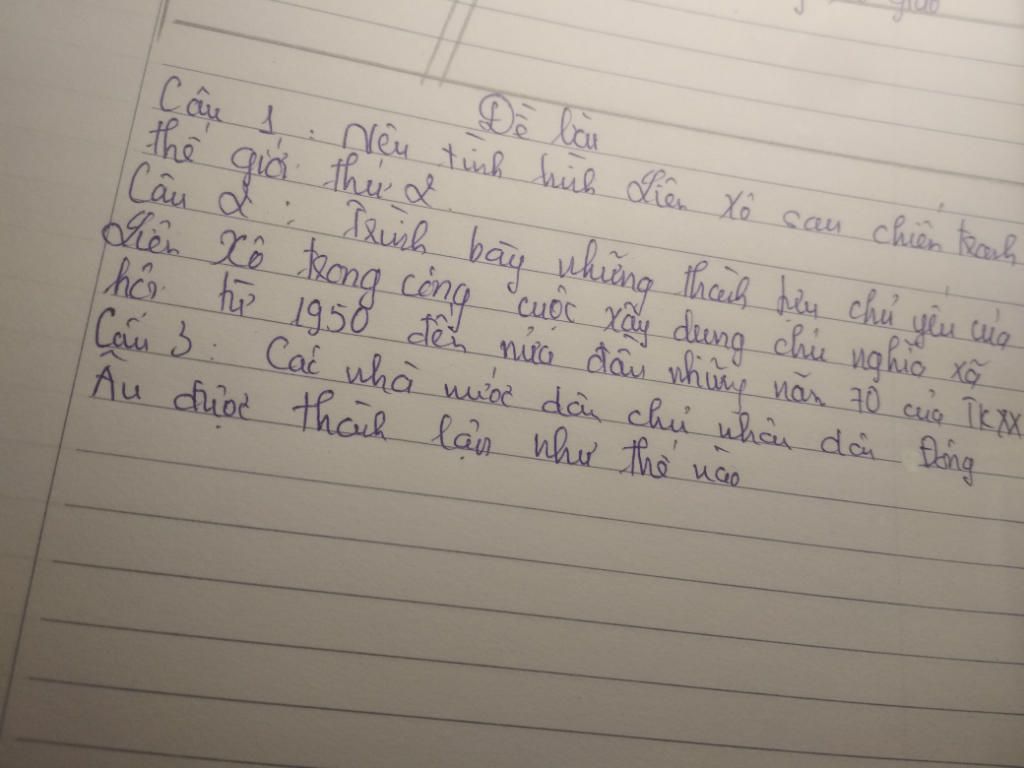 Đề bài
Câu 1 : Nêu tình hình Liên Xô sau chiến tranh
thế giới thứ 2.
Câu 2 : Trình bày những thành tựu chủ yếu của
Liên Xô trong công cuộc xây dung chủ nghĩa xã
hội từ 1950 đến nửa đầu những năm 70 của TKXX
Câu 3 : Các nhà nước dân chủ nhân dân Đông
Âu được thành lập như thế nào